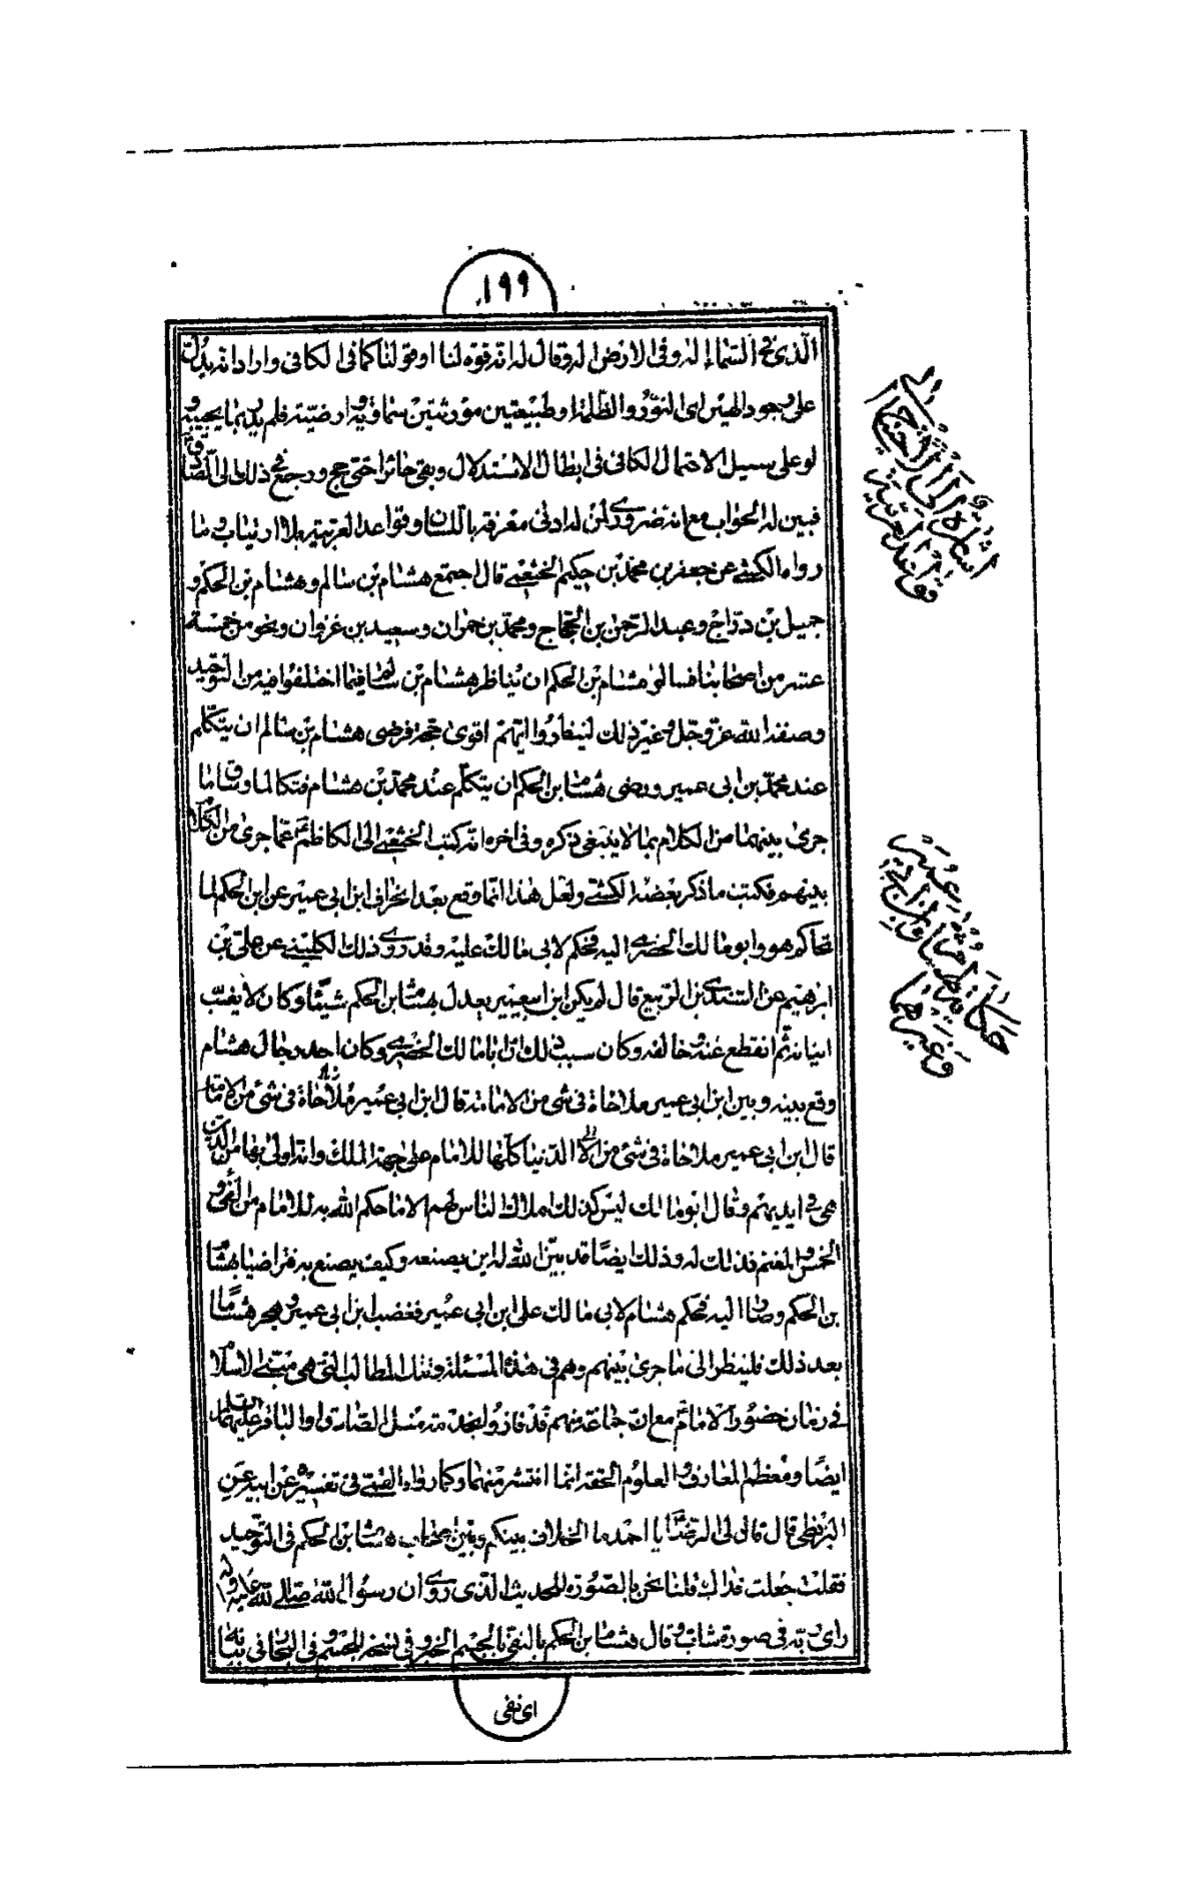 ١٩٩
الّذى فى السّماء اله وفى الارض اله وقال له انه قوة لنا او قولنا كما فى الكافى واراد انه يدلّ
على وجود الهين اى النّور والظّلمة او طبيعتين مؤثرتين سماوية وارضيّة فلم يدر بما يجيبه و
لو على سبيل الاحتمال الكافى فى ابطال الاستدلال وبقى حائرا حتى حج ورجع فى ذلك الى الصّادق
فبين له الجواب مع انه ضرورى لمن له ادنى معرفة باللسان وقواعد العربية بلا ارتياب وما
رواه الكشى عن جعفر بن محمد بن حكيم الخثعمى قال اجتمع هشام بن سالم وهشام بن الحكم و
جميل بن درّاج وعبد الرّحمن بن الحجّاج ومحمد بن حمران وسعيد بن غزوان ونحو من خمسة
عشر من اصحابنا فسالوا هشام بن الحكم ان يناظر هشام بن سالم فيما اختلفوا فيه من التوحيد
وصفة الله عز وجل وغير ذلك لينظروا ايّهم اقوى حجة فرضى هشام بن سالم ان يتكلّم
عند محمد بن ابى عمير ورضى هشام بن الحكم ان يتكلّم عند محمد بن هشام فتكالما وساق ما
جرى بينهما من الكلام بما لا ينبغى ذكره وفى اخره انه كتب الخثعمى الى الكاظم عما جرى من الكلام
بينهم فكتب ما ذكر بعضه الكشى ولعل هذا انّما وقع بعد انحراف ابن ابى عمير عن ابن الحكم لما
تحاكم هو وابو مالك الحضرمى اليه فحكم لابى مالك عليه وقد روى ذلك الكلينى عن على بن
ابرهيم عن السّندى بن الرّبيع قال لم يكن ابن ابى عمير يعدل بهشام بن الحكم شيئا وكان لا يغبّ
اتيانه ثم انقطع عنه وخالفه وكان سبب ذلك ان ابا مالك الحضرمى وكان احد رجال هشام
وقع بينه وبين ابن ابى عمير ملاحاة فى شئ من الامامة قال ابن ابى عمير ملاحاة فى شئ من الامامة
قال ابن ابى عمير ملاحاة فى شئ من الدنيا كلّها للامام على جهة الملك وانه اولى بها من الذين
هى فى ايديهم وقال ابو مالك ليس كذلك املاك الناس لهم الا ما حكم الله به للامام من الفئ و
الخمس والمغنم فذلك له وذلك ايضا قد بيّن الله له اين يصنعه وكيف يصنع به فتراضيا بهشام
بن الحكم وصارا اليه فحكم هشام لابى مالك على ابن ابى عمير فغضب ابن ابى عمير وهجر هشاما
بعد ذلك فلينظر الى ما جرى بينهم وهم فى هذه المسئلة وتلك المطالب التى هى مبتنى الاسلام
فى زمان حضور الامام مع ان جماعة منهم قد فازوا بخدمة مثل الصّادق او الباقر عليهما السّلام
ايضا ومعظم المعارف والعلوم الحقة انما انتشر منهما وكما رواه القمى فى تفسيره عن ابيه عن
البزنطى قال قال لى الرضا يا احمد ما الخلاف بينكم وبين اصحاب هشام بن الحكم فى التوحيد
فقلت جعلت فداك قلنا نحن بالصّورة للحديث الذى روى ان رسول الله صلى الله عليه واله
راى ربه فى صورة شاب وقال هشام بن الحكم بالنفى بالجسم الخ وفى نسخة للجسم وفى البحار فى بيانه
اى نفى
اشاره الى
قواعد العربية
وغيرهما